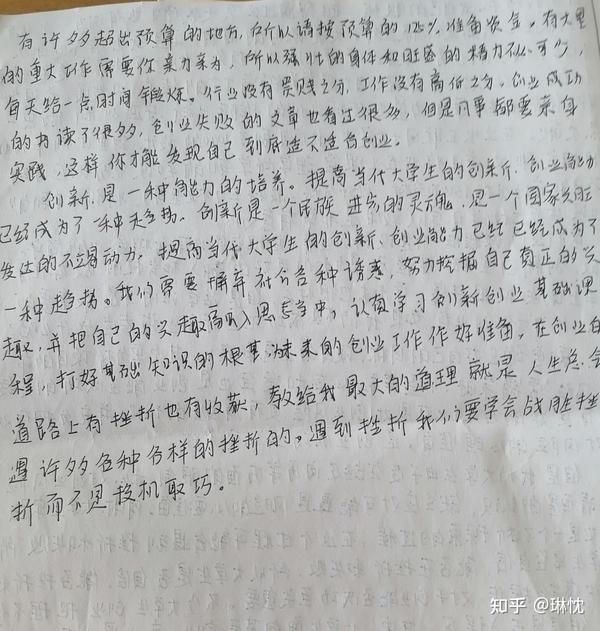 有许多超出预算的地方,所以请按预算的120%准备资金。有大量
的重大工作需要你亲力亲为,所以强壮的身体和旺盛的精力不可少,
每天给一点时间锻炼。行业没有贵贱之分,工作没有高低之分,创业成功
的书读了很多,创业失败的文章也看过很多,但是凡事都要亲自
实践,这样你才能发现自己到底适不适合创业。
创新是一种能力的培养。提高当代大学生的创新、创业能力
已经成为了一种趋势。创新是一个民族进步的灵魂,是一个国家兴旺
发达的不竭动力,提高当代大学生的创新、创业能力已经已经成为了
一种趋势。我们需要摒弃社会各种诱惑,努力挖掘自己真正的兴
趣,并把自己的兴趣融入思考当中,认真学习创新创业基础课
程,打好基础知识的根基为未来的创业工作作好准备,在创业的
道路上有挫折也有收获,教给我最大的道理就是人生总会
遇许多各种各样的挫折的。遇到挫折我们要学会战胜挫
折而不是投机取巧。
知乎 @琳忱